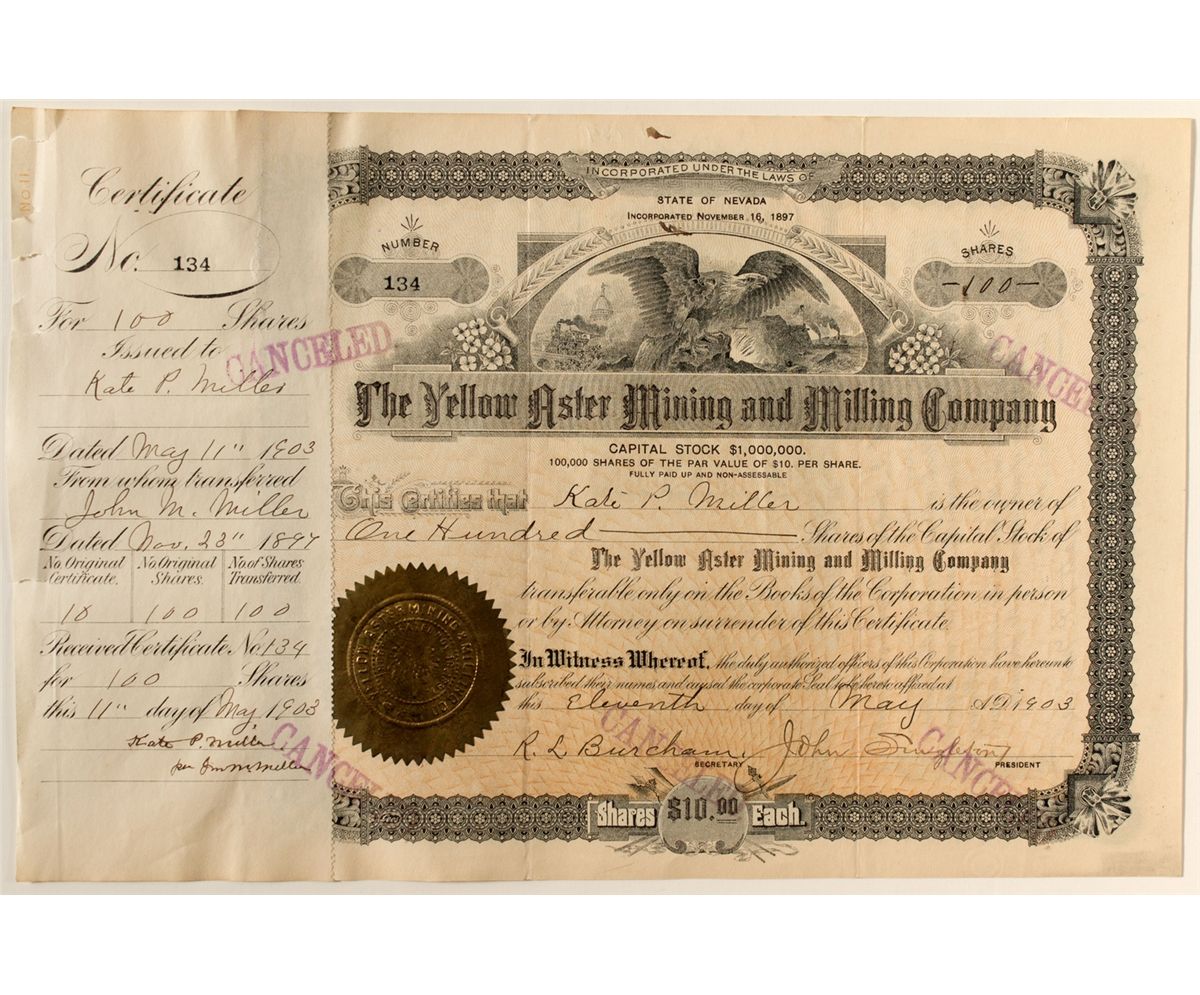 Certificate
No. 134
For 100 Shares
Issued to
Kate P. Miller
Dated May 11" 1903
From whom transferred
John M. Miller
Dated Nov. 23" 1897
No Original Certificate.
No Original Shares.
No of Shares Transferred.
10 100 100
Received Certificate No 134
for 100 Shares
this 11" day of May 1903
Kate P. Miller
per Jno M. Miller
CANCELED
INCORPORATED UNDER THE LAWS OF
STATE OF NEVADA
INCORPORATED NOVEMBER 16, 1897
NUMBER
134
SHARES
-100-
CANCELED
The Yellow Aster Mining and Milling Company
CAPITAL STOCK $1,000,000.
100,000 SHARES OF THE PAR VALUE OF $10. PER SHARE.
FULLY PAID UP AND NON-ASSESSABLE
This Certifies that Kate P. Miller is the owner of
One Hundred Shares of the Capital Stock of
The Yellow Aster Mining and Milling Company
transferable only on the Books of the Corporation in person
or by Attorney on surrender of this Certificate.
In Witness Whereof, the duly authorized officers of this Corporation have hereunto
subscribed their names and caused the corporate Seal to be hereto affixed at
this Eleventh day of May A.D. 1903
R. L. Burcham, John Singleton
SECRETARY PRESIDENT
CANCELED
CANCELED
CANCELED
Shares $10.00 Each.